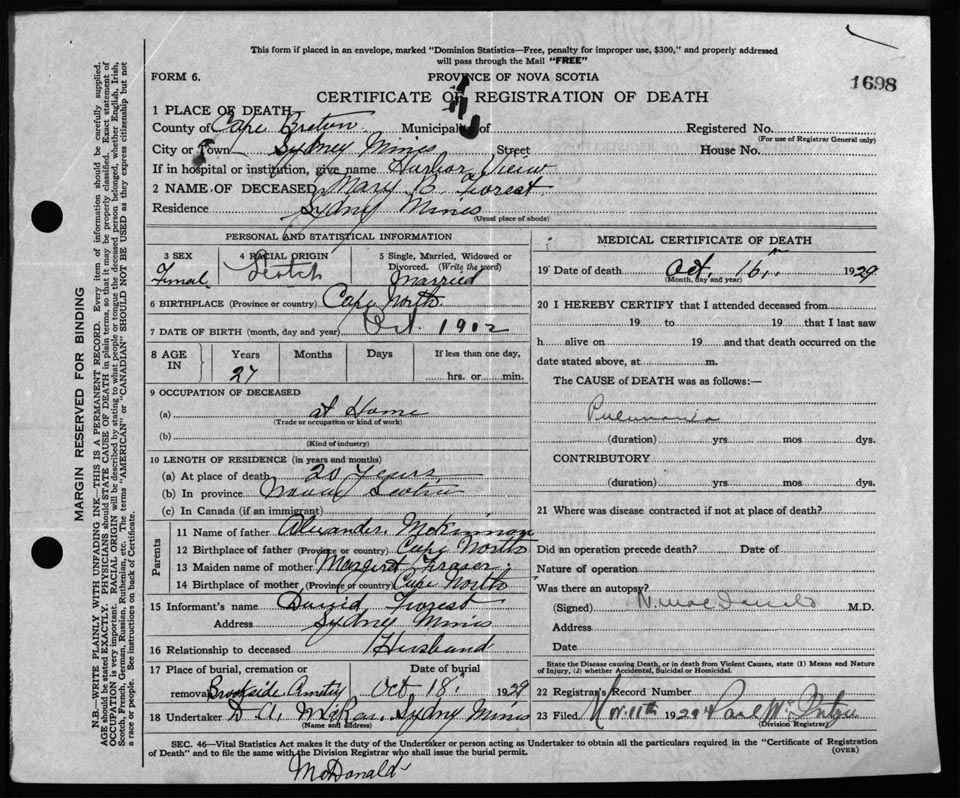 This form if placed in an envelope, marked "Dominion Statistics—Free, penalty for improper use, $300," and properly addressed
will pass through the Mail "FREE"
FORM 6.
PROVINCE OF NOVA SCOTIA
1698
CERTIFICATE OF REGISTRATION OF DEATH
1 PLACE OF DEATH
County of Cape Breton Municipality of Registered No.
(For use of Registrar General only)
City or Town Sydney Mines Street House No.
If in hospital or institution, give name Harbor View
2 NAME OF DECEASED Mary B. Forest
Residence Sydny Mines
(Usual place of abode)
PERSONAL AND STATISTICAL INFORMATION
3 SEX 4 RACIAL ORIGIN 5 Single, Married, Widowed or
Divorced. (Write the word)
Femal Scotch Married
6 BIRTHPLACE (Province or country) Cape North
7 DATE OF BIRTH (month, day and year) Oct. 1902
8 AGE IN Years Months Days If less than one day,
27 hrs. or min.
9 OCCUPATION OF DECEASED
(a) at Home
(Trade or occupation or kind of work)
(b)
(Kind of industry)
10 LENGTH OF RESIDENCE (in years and months)
(a) At place of death 20 Years
(b) In province Nova Scotia
(c) In Canada (if an immigrant)
Parents
11 Name of father Alexander McKinnon
12 Birthplace of father (Province or country) Cape North
13 Maiden name of mother Margret Fraser
14 Birthplace of mother (Province or country) Cape North
15 Informant's name David Forest
Address Sydny Mines
16 Relationship to deceased Husband
17 Place of burial, cremation or Date of burial
removal Brookside Oct 18 1929
18 Undertaker D A. Sydny Mines
(Name and address)
MEDICAL CERTIFICATE OF DEATH
19 Date of death Oct. 16 1929
(Month, day and year)
20 I HEREBY CERTIFY that I attended deceased from
19 to 19 that I last saw
h alive on 19 and that death occurred on the
date stated above, at m.
The CAUSE of DEATH was as follows:—
(duration) yrs mos dys.
CONTRIBUTORY
(duration) yrs. mos dys.
21 Where was disease contracted if not at place of death?
Did an operation precede death? Date of
Nature of operation
Was there an autopsy?
(Signed) N. MacDonald M.D.
Address
Date
State the Disease causing Death, or in death from Violent Causes, state (1) Means and Nature
of Injury, (2) whether Accidental, Suicidal or Homicidal.
22 Registrar's Record Number
23 Filed Nov. 11th 1929
(Division Registrar)
SEC. 46—Vital Statistics Act makes it the duty of the Undertaker or person acting as Undertaker to obtain all the particulars required in the "Certificate of Registration
of Death" and to file the same with the Division Registrar who shall issue the burial permit.
(OVER)
McDonald
MARGIN RESERVED FOR BINDING
N.B.—WRITE PLAINLY WITH UNFADING INK—THIS IS A PERMANENT RECORD. Every item of information should be carefully supplied.
AGE should be stated EXACTLY. PHYSICIANS should STATE CAUSE OF DEATH in plain terms, so that it may be properly classified. Exact statement of
OCCUPATION is very important. RACIAL ORIGIN will be described by stating to what people or tongue the deceased person belonged, whether English, Irish,
Scotch, French, German, Russian, Ruthenian, etc. The terms "AMERICAN" or "CANADIAN" SHOULD NOT BE USED as they express citizenship but not
a race or people. See instructions on back of Certificate.